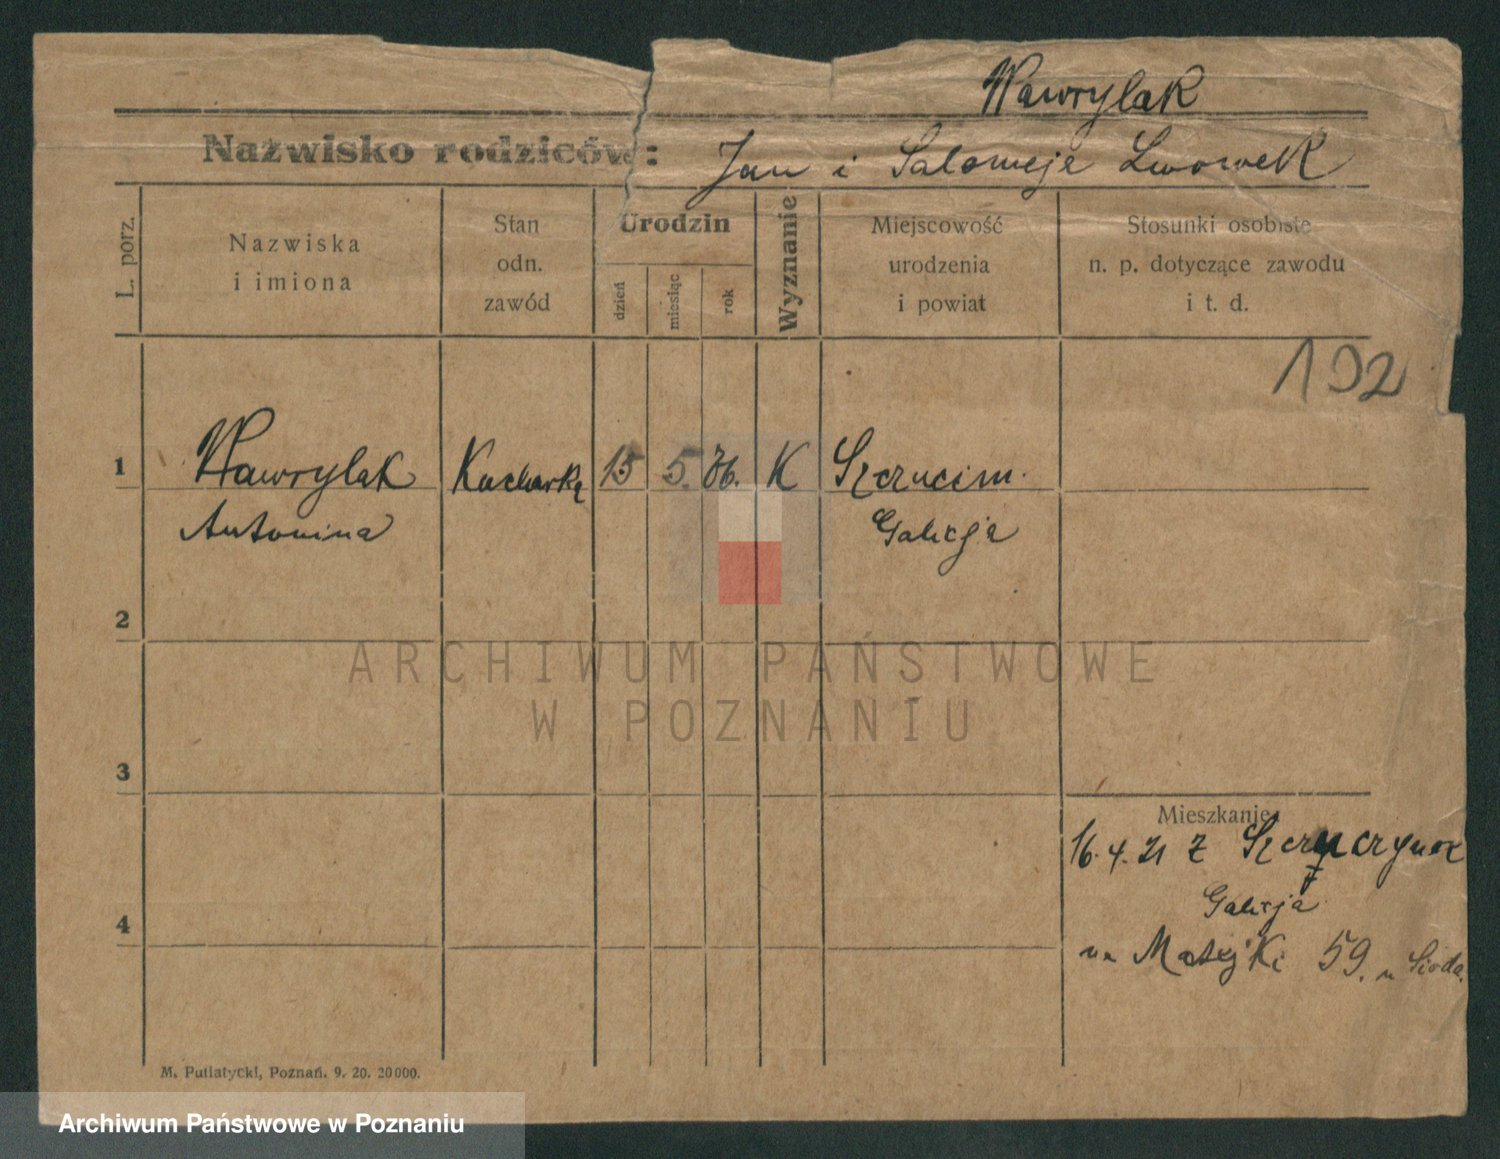 Wawrylak
Nazwisko rodziców: Jan i Salomeje Lwowek
L. porz.
Nazwiska
i imiona
Stan
odn.
zawód
Urodzin
dzień
miesiąc
rok
Wyznanie
Miejscowość
urodzenia
i powiat
Stosunki osobiste
n. p. dotyczące zawodu
i t. d.
192
1 Wawrylak Kucharka 15 5. 76. K Szczucim.
Antonina Galicja
2
3
4
Mieszkanie
16.4.21 z
Galicja
na Matejki 59. u
M. Putiatycki, Poznań. 9. 20. 20000.
ARCHIWUM PAŃSTWOWE
W POZNANIU
Archiwum Państwowe w Poznaniu